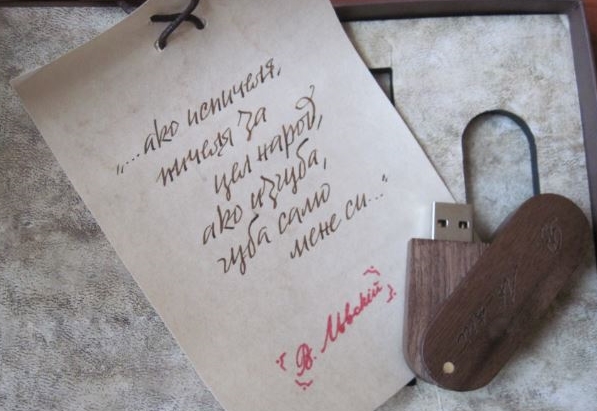 „...ако испичеля,
пичеля за
цел народ,
ако изгуба,
губа само
мене си..."
В. Львскій